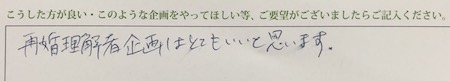 こうした方が良い・このような企画をやってほしい等、ご要望がございましたらご記入ください。
再婚理解者企画はとてもいいと思います。